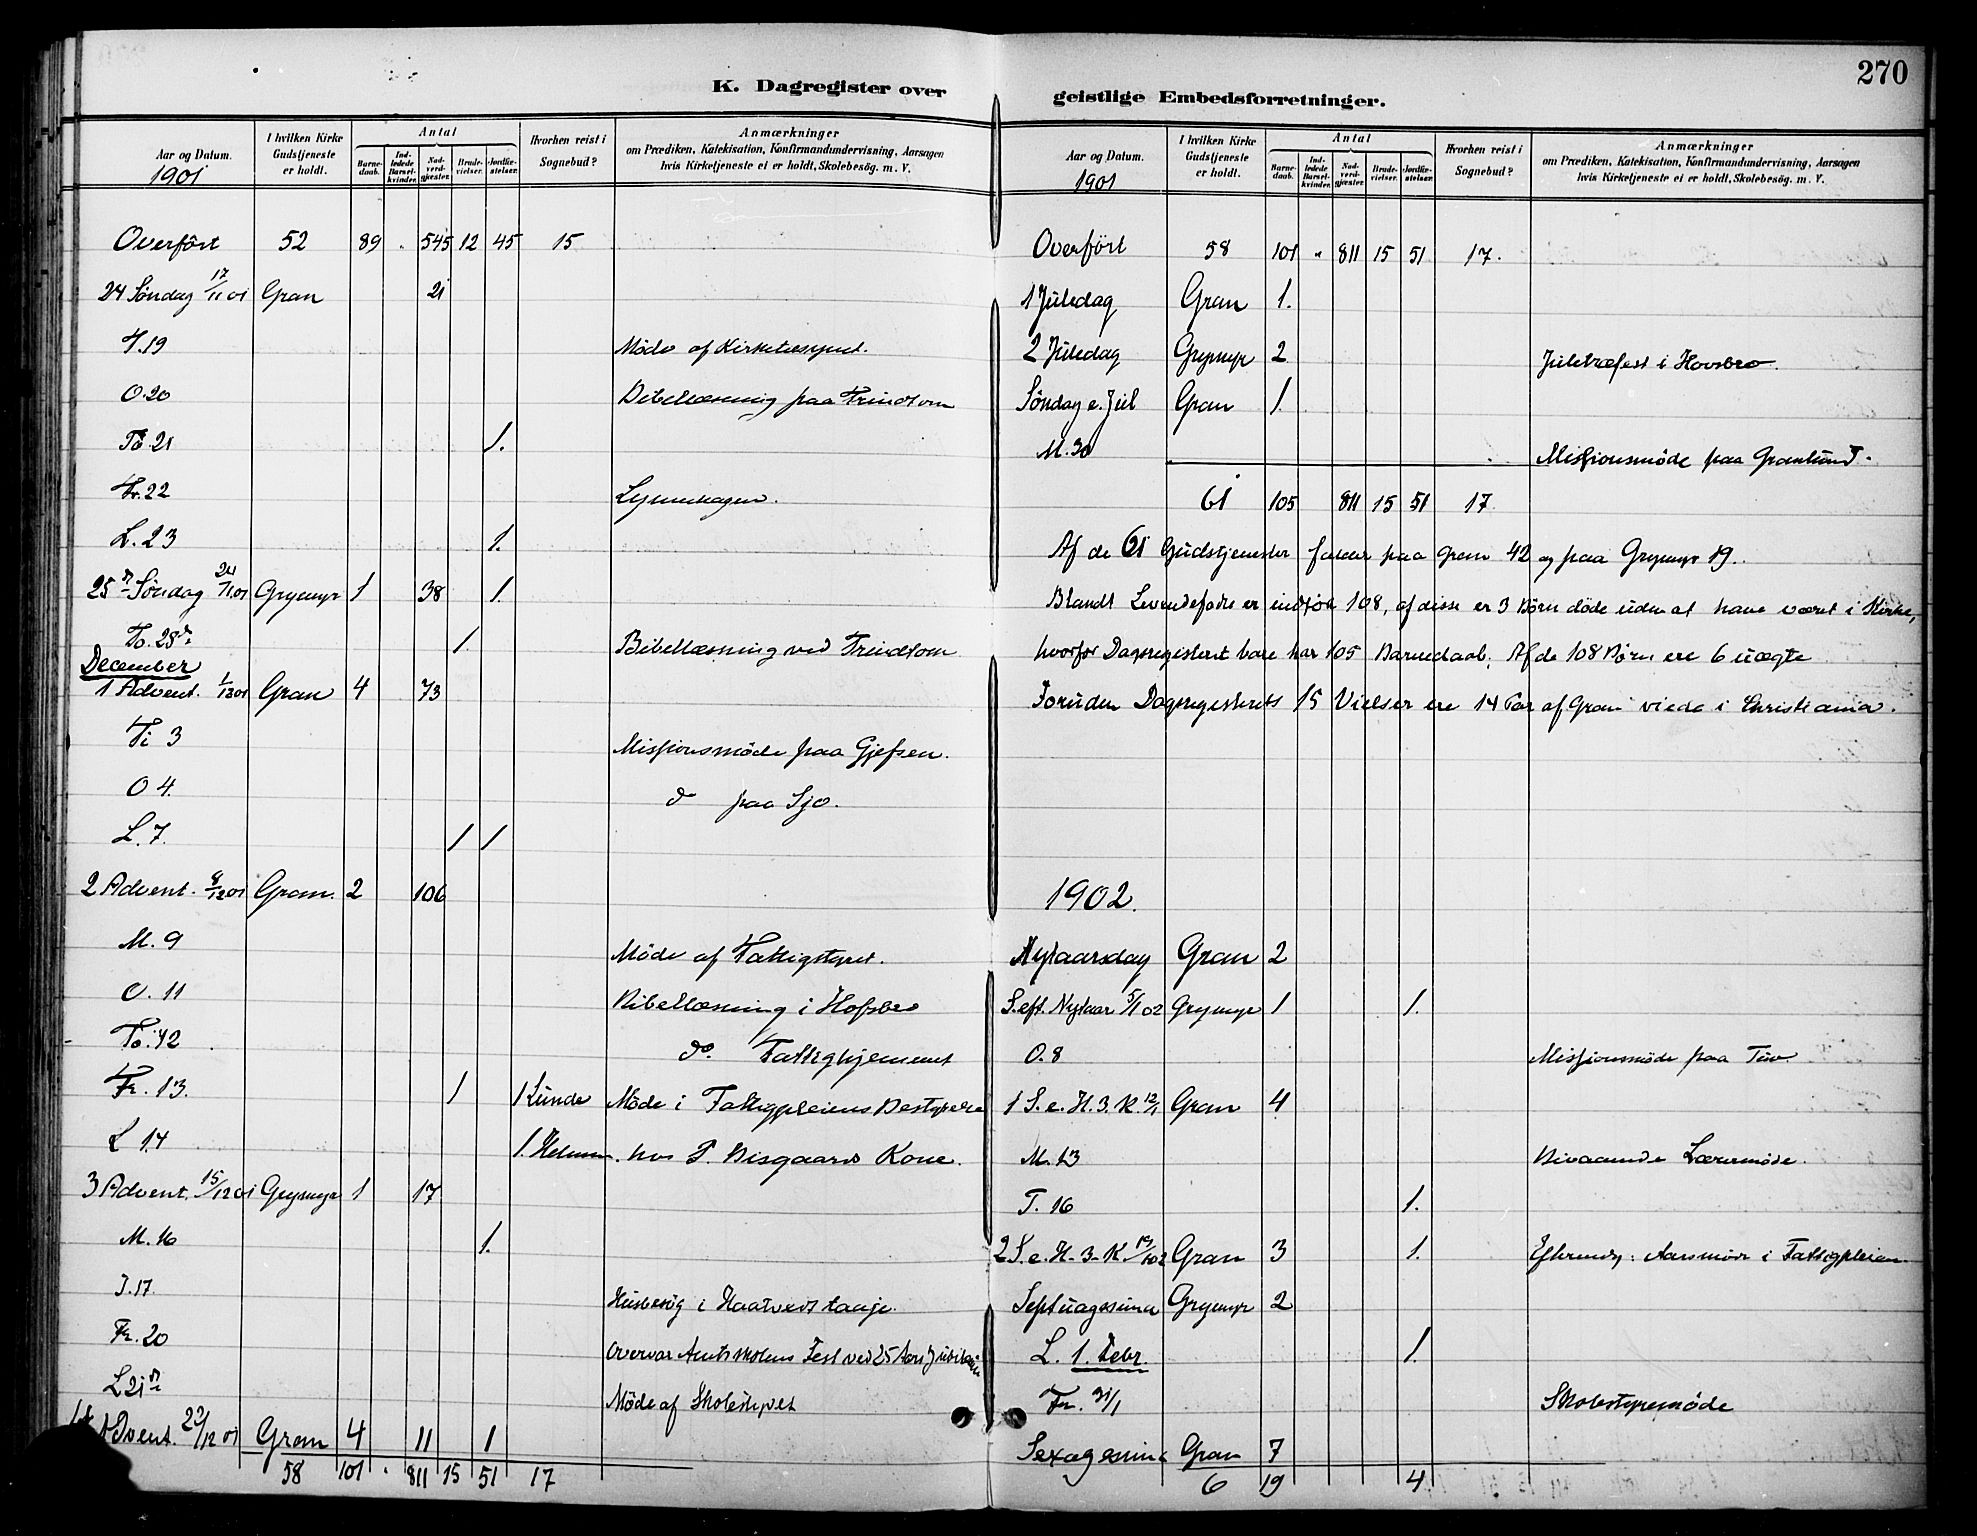 K. Dagregister over
Aar og Datum. I hvilken Kirke Gudstjeneste er holdt. Antal Barnedaab. Indledede Barselkvinder. Nadverdgjester. Brudevielser. Jordfæstelser. Hvorhen reist i Sognebud? Anmærkninger om Prædiken, Katekisation, Konfirmandundervisning, Aarsagen hvis Kirketjeneste ei er holdt, Skolebesøg. m. V.
1901
Overført 52 89 " 545 12 45 15
24 Søndag 17/11 01 Gran 21
T. 19 Møde af Kirketilsynet.
O. 20 Bibellæsning paa Trindtom
To. 21 1.
Fr. 22
L. 23 1.
25de Søndag 24/11 01 Grymyr 1 38 1.
To. 28de 1. Bibellæsning ved Trindtom
December
1 Advent. 1/12 01 Gran 4 73
Ti 3 Missionsmøde paa Gjefsen.
O 4. do paa Sjo.
L. 7. 1 1
2 Advent. 8/12 01 Gran. 2 106
M. 9 Møde af Fattigstyret.
O. 11 Bibellæsning i Hofsbro
To. 12 do. Fattighjemmet
Fr. 13. 1 1 Lunde Møde i Fattigpleiens Bestyrelse
L 14 1. hos P. Bisgaards Kone.
3 Advent. 15/12 01 Grymyr 1 17
M. 16 1.
T. 17. Husbesøg i
Fr. 20 Overvar Amtsskolens Fest ved 25 Aars Jubilæum
L 21de Møde af Skolestyret
Advent. 22/12 01 Gran 4 11 1
58 101 " 811 15 51 17
270
geistlige Embedsforretninger.
Aar og Datum. I hvilken Kirke Gudstjeneste er holdt. Antal Barnedaab. Indledede Barselkvinder. Nadverdgjester. Brudevielser. Jordfæstelser. Hvorhen reist i Sognebud? Anmærkninger om Prædiken, Katekisation, Konfirmandundervisning, Aarsagen hvis Kirketjeneste ei er holdt, Skolebesøg. m. V.
1901
Overført 58 101 " 811 15 51 17.
1 Juledag Gran 1.
2 Juledag Grymyr 2 Juletræfest i Hovsbro.
Søndag e. Jul Gran 1.
M. 30 Missionsmøde paa Granlund.
61 105 811 15 51 17.
Af de 61 Gudstjenester falder paa Gran 42 og paa Grymyr 19.
Blandt Levendefødte er indført 108, af disse er 3 Børn døde uden at have været i Kirke,
hvorfor Dagsregisteret bare har 105 Barnedaab; Af de 108 Børn ere 6 uægte
Foruden Dagsregisterets 15 Vielser ere 14 Par af Gran viede i Christiania.
1902.
Nytaarsdag Gran 2
S. eft. Nytaar 5/1 02 Grymyr 1 1.
O. 8 Missionsmøde paa
1 S. e. H. 3. K. 12/1 Gran 4
M. 13 Bivaanede Lærermøde.
T. 16 1.
2 S. e. H. 3. K 19/1 02 Gran 3 1. Aarsmøde i Fattigpleien
Septuagesima Grymyr 2
L. 1. Febr. 1.
Fr. 31/1 Skolestyremøde
Sexagesima Gran 7
6 19 4